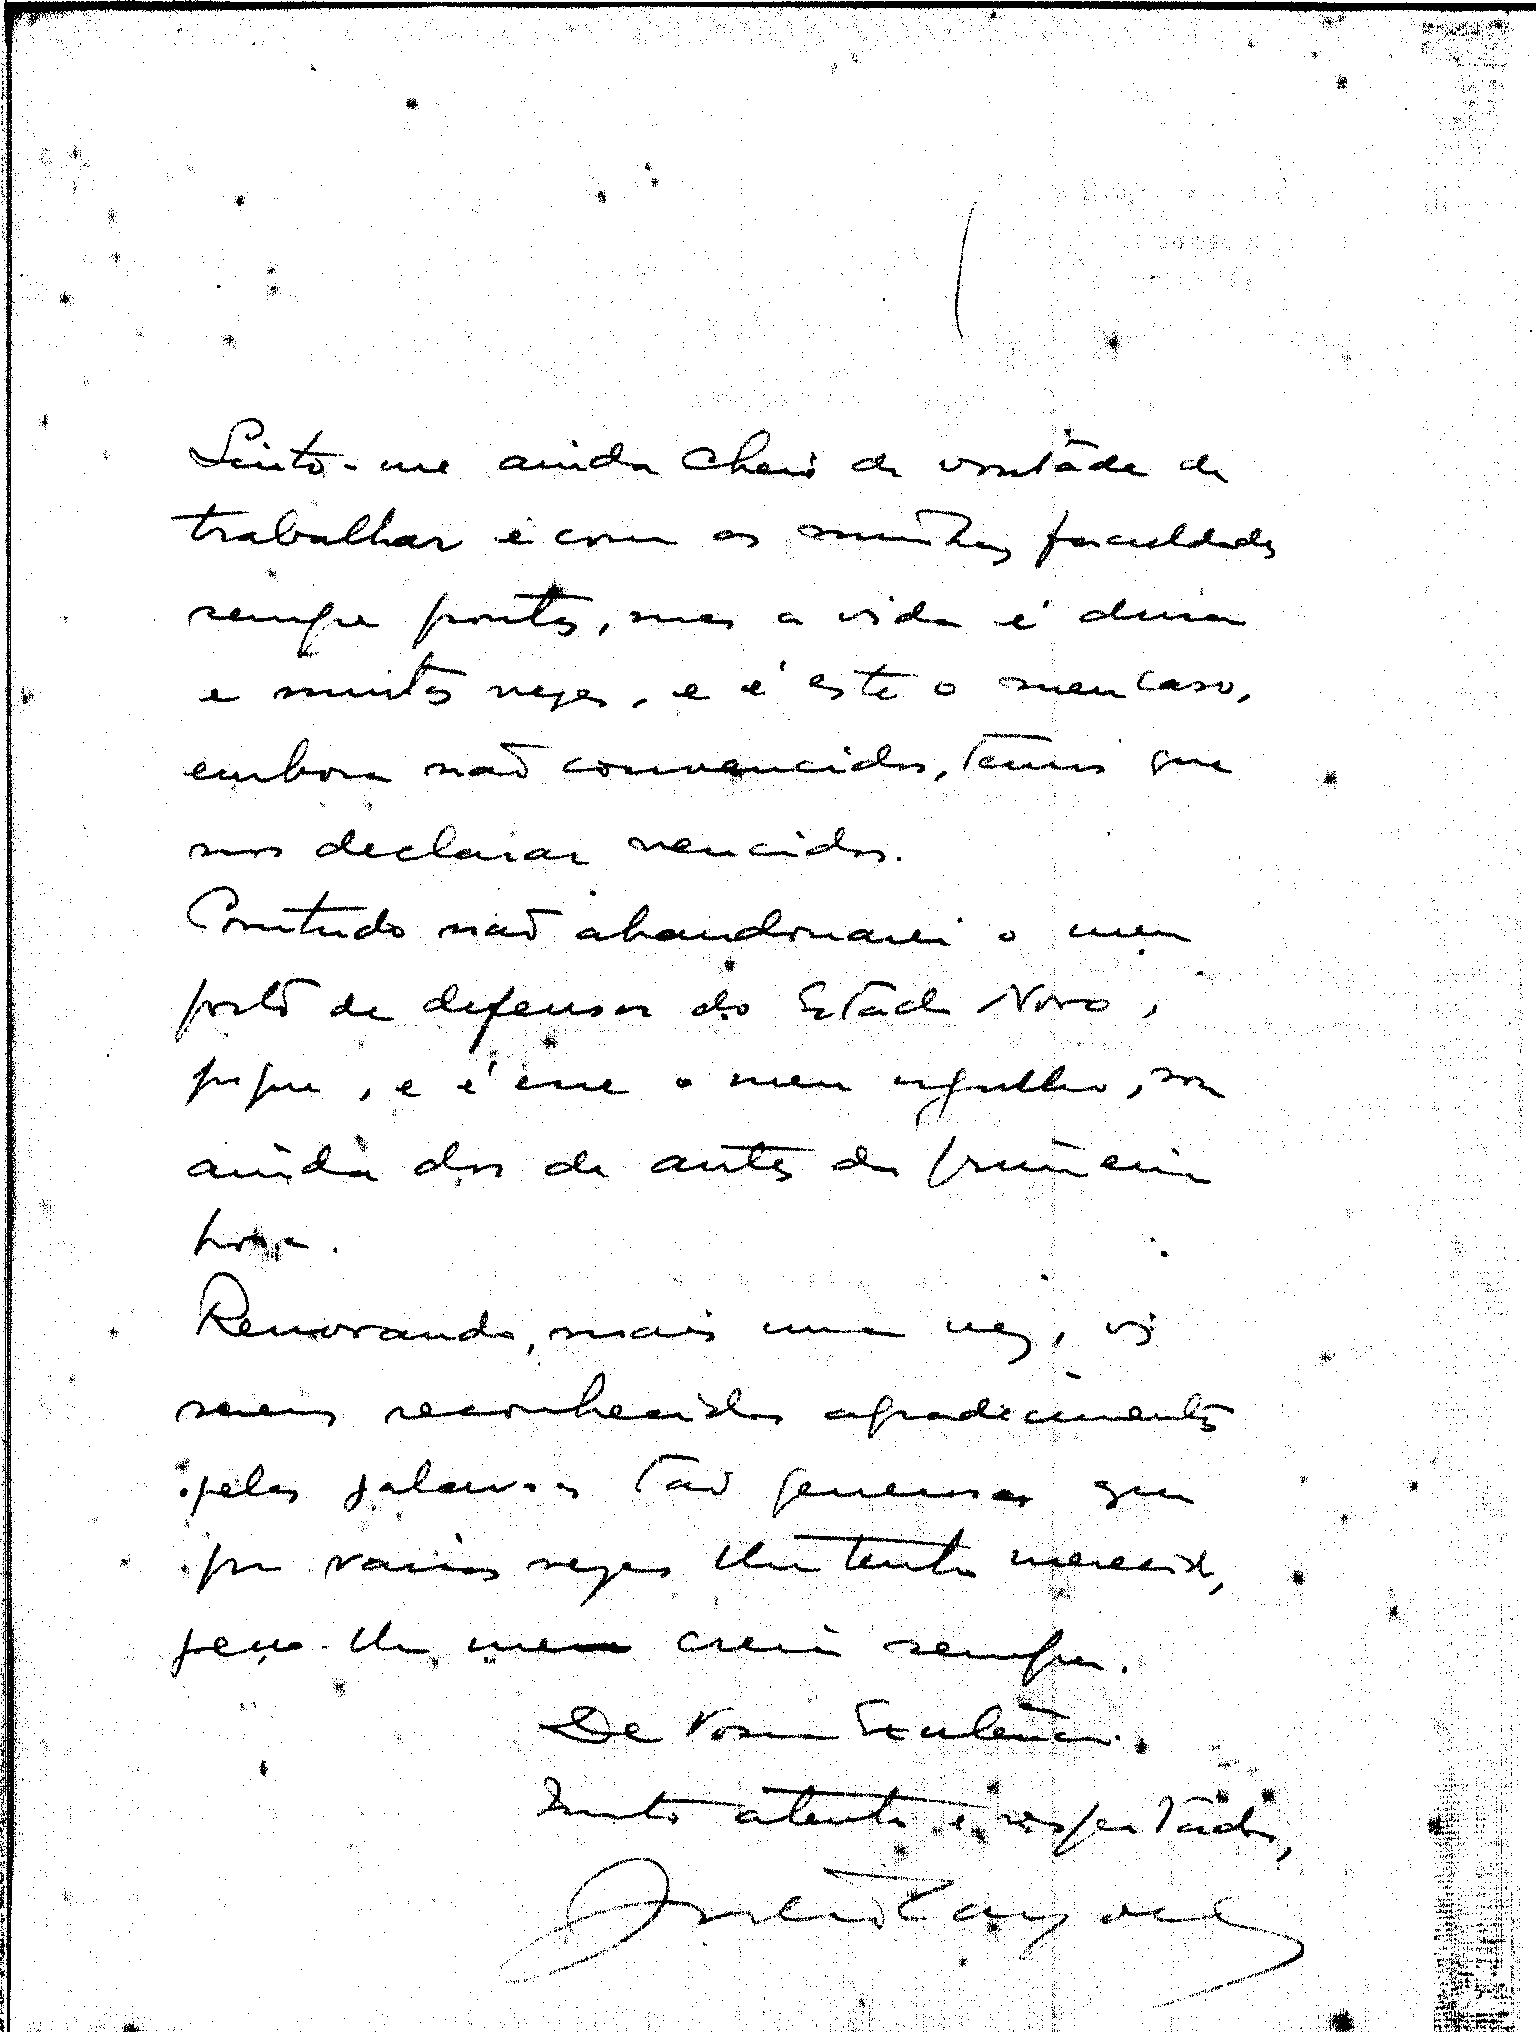 Sinto-me ainda cheio de vontade de
trabalhar e com as minhas faculdades
sempre prontas, mas a vida é dura
e muitas vezes, e é este o meu caso,
embora não convencidos, temos que
nos declarar vencidos.
Contudo não abandonarei o meu
posto de defensor do Estado Novo,
porque, e é esse o meu orgulho, sou
ainda dos de antes da primeira
hora.
Renovando, mais uma vez, os
meus reconhecidos agradecimentos
pelas palavras tão generosas que
por varias vezes lhe tenho merecido,
peço-lhe me creia sempre.
De Vossa Excelencia.
Muito atento e respeitador,